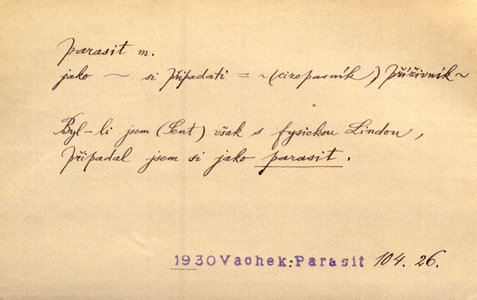 parasit m.
jako ~ si připadati = ~ (cizopasník) příživník ~
Byl-li jsem (Sent) však s fysickou Lindou,
připadal jsem si jako parasit.
1930 Vachek: Parasit 104. 26.